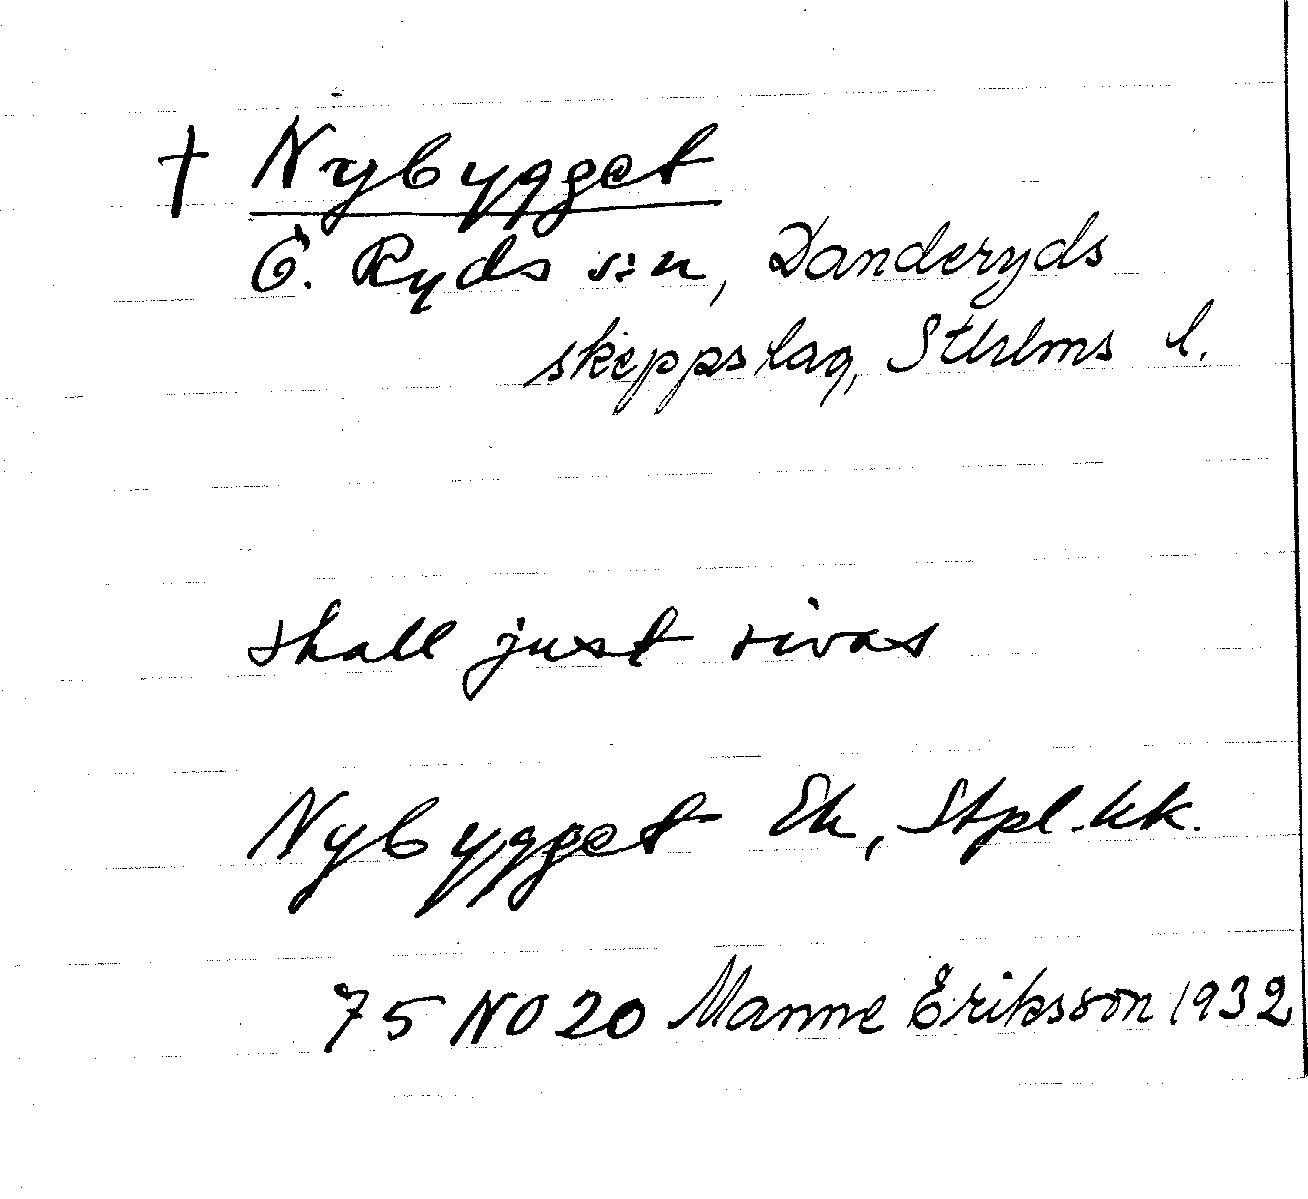 † Nybygget
Ö. Ryds s:n, Danderyds
skeppslag, Sthlms l.
skall just rivas
Nybygget Ek, Stpl.-kk.
75 NO 20 Manne Eriksson 1932